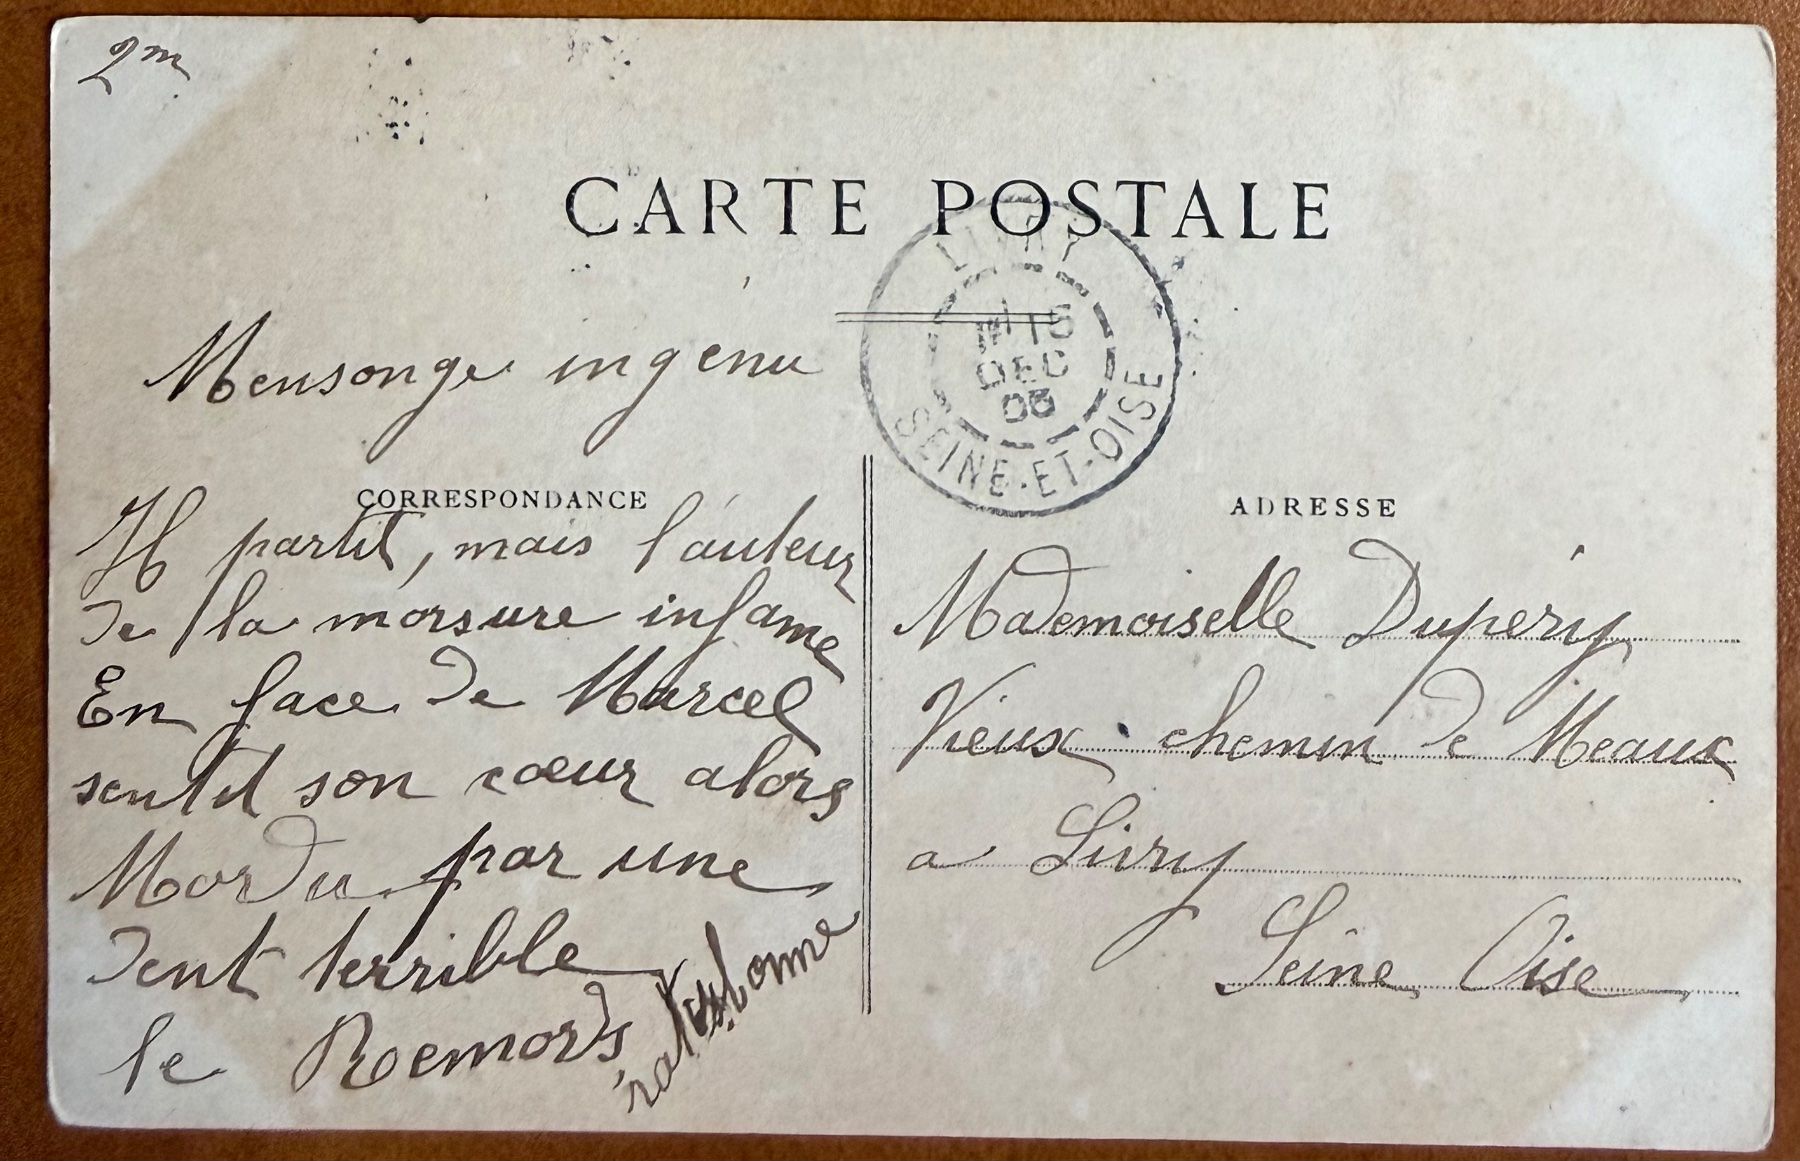 2m
CARTE POSTALE
LIVRY
15
DEC
SEINE-ET-OISE
Mensonge ingénu
CORRESPONDANCE
Il partit, mais l'auteur
de la morsure infame
En face de Marcel
sentit son cœur alors
Mordu par une
dent terrible
le Remords
ADRESSE
Mademoiselle Dupéry
Vieux chemin de Meaux
a Livry
Seine Oise